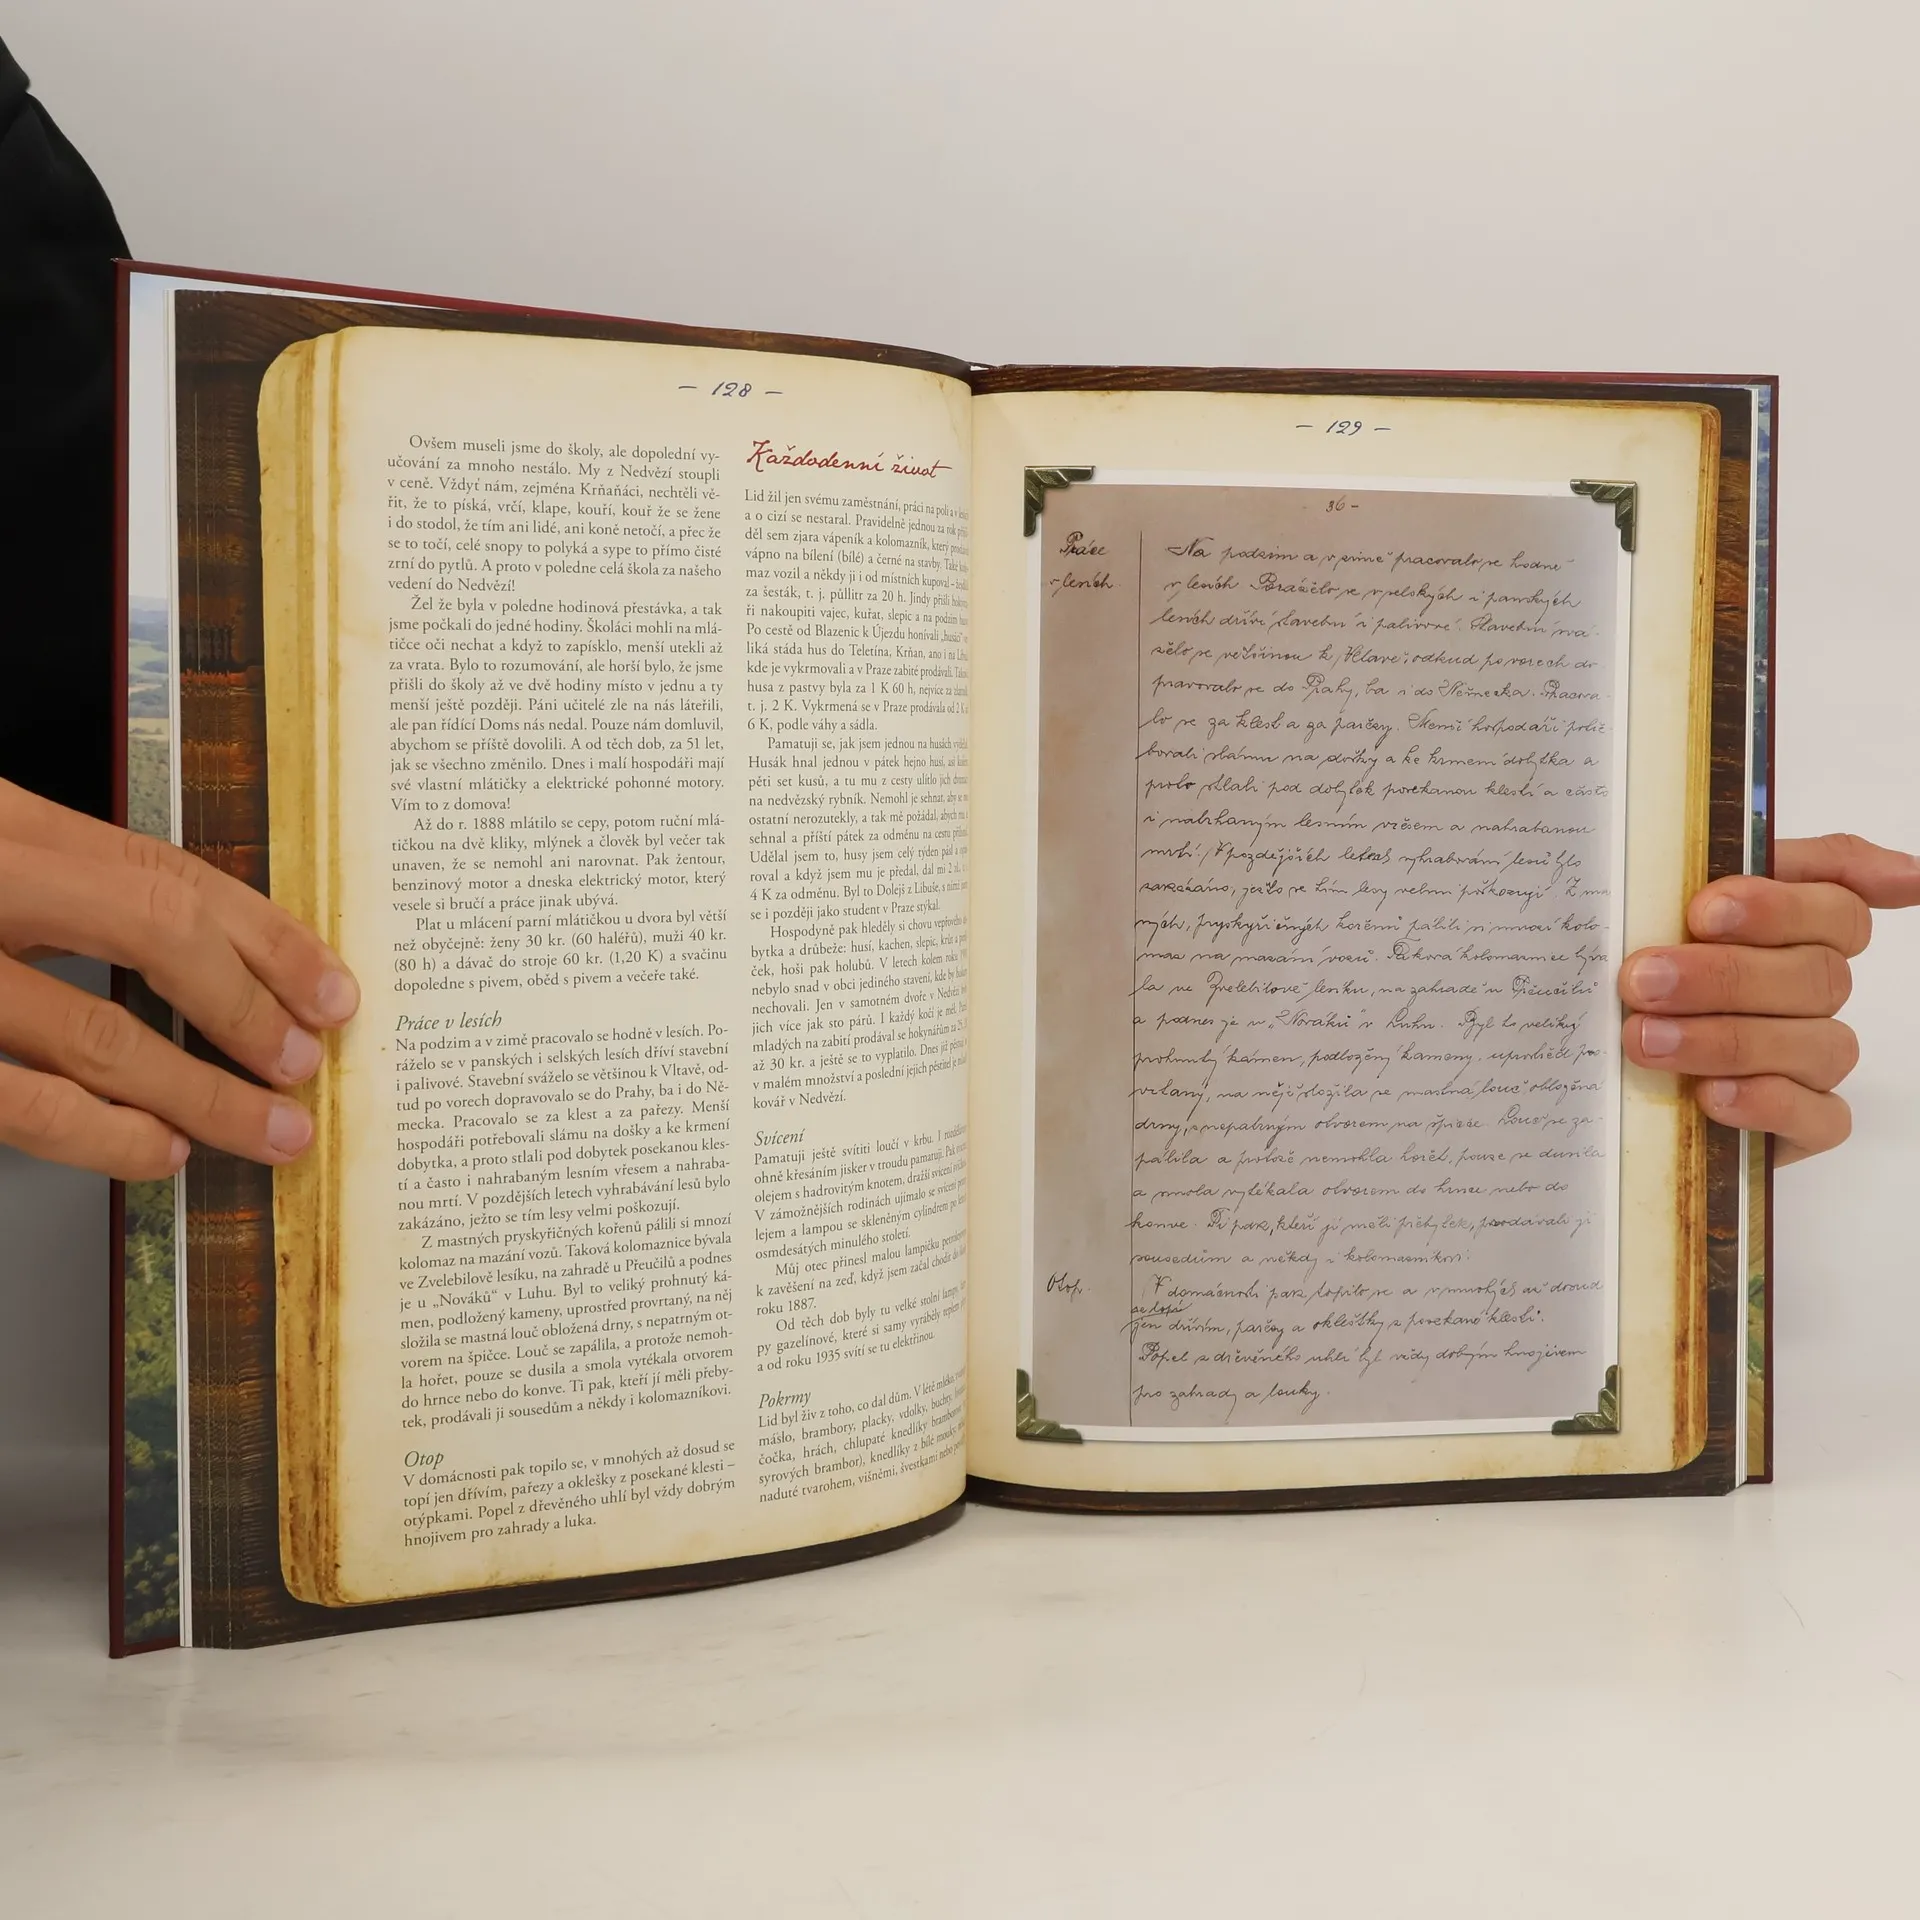 — 128 —
Ovšem museli jsme do školy, ale dopolední vy-
učování za mnoho nestálo. My z Nedvězí stoupli
v ceně. Vždyť nám, zejména Krňaňáci, nechtěli vě-
řit, že to píská, vrčí, klape, kouří, kouř že se žene
i do stodol, že tím ani lidé, ani koně netočí, a přec že
se to točí, celé snopy to polyká a sype to přímo čisté
zrní do pytlů. A proto v poledne celá škola za našeho
vedení do Nedvězí!
Žel že byla v poledne hodinová přestávka, a tak
jsme počkali do jedné hodiny. Školáci mohli na mlá-
tičce oči nechat a když to zapísklo, menší utekli až
za vrata. Bylo to rozumování, ale horší bylo, že jsme
přišli do školy až ve dvě hodiny místo v jednu a ty
menší ještě později. Páni učitelé zle na nás láteřili,
ale pan řídící Doms nás nedal. Pouze nám domluvil,
abychom se příště dovolili. A od těch dob, za 51 let,
jak se všechno změnilo. Dnes i malí hospodáři mají
své vlastní mlátičky a elektrické pohonné motory.
Vím to z domova!
Až do r. 1888 mlátilo se cepy, potom ruční mlá-
tičkou na dvě kliky, mlýnek a člověk byl večer tak
unaven, že se nemohl ani narovnat. Pak žentour,
benzinový motor a dneska elektrický motor, který
vesele si bručí a práce jinak ubývá.
Plat u mlácení parní mlátičkou u dvora byl větší
než obyčejně: ženy 30 kr. (60 haléřů), muži 40 kr.
(80 h) a dávač do stroje 60 kr. (1,20 K) a svačinu
dopoledne s pivem, oběd s pivem a večeře také.
Práce v lesích
Na podzim a v zimě pracovalo se hodně v lesích. Po-
ráželo se v panských i selských lesích dříví stavební
i palivové. Stavební sváželo se většinou k Vltavě, od-
tud po vorech dopravovalo se do Prahy, ba i do Ně-
mecka. Pracovalo se za klest a za pařezy. Menší
hospodáři potřebovali slámu na došky a ke krmení
dobytka, a proto stlali pod dobytek posekanou kles-
tí a často i nahrabaným lesním vřesem a nahraba-
nou mrtí. V pozdějších letech vyhrabávání lesů bylo
zakázáno, ježto se tím lesy velmi poškozují.
Z mastných pryskyřičných kořenů pálili si mnozí
kolomaz na mazání vozů. Taková kolomaznice bývala
ve Zvelebilově lesíku, na zahradě u Přeučilů a podnes
je u „Nováků“ v Luhu. Byl to veliký prohnutý ká-
men, podložený kameny, uprostřed provrtaný, na něj
složila se mastná louč obložená drny, s nepatrným ot-
vorem na špičce. Louč se zapálila, a protože nemoh-
la hořet, pouze se dusila a smola vytékala otvorem
do hrnce nebo do konve. Ti pak, kteří jí měli přeby-
tek, prodávali ji sousedům a někdy i kolomazníkovi.
Otop
V domácnosti pak topilo se, v mnohých až dosud se
topí jen dřívím, pařezy a oklešky z posekané klesti –
otýpkami. Popel z dřevěného uhlí byl vždy dobrým
hnojivem pro zahrady a luka.
Každodenní život
Lid žil jen svému zaměstnání, práci na poli a v
a o cizí se nestaral. Pravidelně jednou za rok
děl sem zjara vápeník a kolomazník, který
vápno na bílení (bílé) a černé na stavby. Také
maz vozil a někdy ji i od místních kupoval –
za šesták, t. j. půllitr za 20 h. Jindy přišli
ři nakoupiti vajec, kuřat, slepic a na podzim
Po cestě od Blazenic k Újezdu honívali „husáci“
liká stáda hus do Teletína, Krňan, ano i na
kde je vykrmovali a v Praze zabité prodávali.
husa z pastvy byla za 1 K 60 h, nejvíce za
t. j. 2 K. Vykrmená se v Praze prodávala od 2 K
6 K, podle váhy a sádla.
Pamatuji se, jak jsem jednou na husách
Husák hnal jednou v pátek hejno husí, asi
pěti set kusů, a tu mu z cesty ulítlo jich
na nedvězský rybník. Nemohl je sehnat, aby se
ostatní nerozutekly, a tak mě požádal, abych
sehnal a příští pátek za odměnu na cestu
Udělal jsem to, husy jsem celý týden pásl a
roval a když jsem mu je předal, dal mi 2
4 K za odměnu. Byl to Dolejš z Libuše, s nímž
se i později jako student v Praze stýkal.
Hospodyně pak hleděly si chovu vepřového
bytka a drůbeže: husí, kachen, slepic, krůt a
ček, hoši pak holubů. V letech kolem roku
nebylo snad v obci jediného stavení, kde by
nechovali. Jen v samotném dvoře v Nedvězí
jich více jak sto párů. I každý kočí je měl.
mladých na zabití prodával se hokynářům za
až 30 kr. a ještě se to vyplatilo. Dnes již
v malém množství a poslední jejich pěstitel je
kovář v Nedvězí.
Svícení
Pamatuji ještě svítiti loučí v krbu. I
ohně křesáním jisker v troudu pamatuji. Pak
olejem s hadrovitým knotem, dražší svícení
V zámožnějších rodinách ujímalo se svícení
lejem a lampou se skleněným cylindrem po
osmdesátých minulého století.
Můj otec přinesl malou lampičku
k zavěšení na zeď, když jsem začal chodit do
roku 1887.
Od těch dob byly tu velké stolní lampy,
py gazelínové, které si samy vyráběly
a od roku 1935 svítí se tu elektřinou.
Pokrmy
Lid byl živ z toho, co dal dům. V létě mléko,
máslo, brambory, placky, vdolky, buchty,
čočka, hrách, chlupaté knedlíky
syrových brambor), knedlíky z bílé mouky
naduté tvarohem, višněmi, švestkami nebo
— 129 —
36 -
Práce
v lesích
Na podzim a v zimě pracovalo se hodně
v lesích. Poráželo se v selských i panských
lesích dříví stavební i palivové. Stavební svá-
želo se většinou k Vltavě, odkud po vorech do-
pravovalo se do Prahy, ba i do Německa. Pracova-
lo se za klest a za pařezy. Menší hospodáři potře-
bovali slámu na došky a ke krmení dobytka a
proto stlali pod dobytek posekanou klestí a často
i nabrhaným lesním vřesem a nahrabanou
mrtí. V pozdějších letech vyhrabování lesů bylo
zakázáno, ježto se tím lesy velmi poškozují. Z mast-
ných, pryskyřičných kořenů pálili si mnozí kolo-
maz na mazání vozů. Taková kolomaznice býva-
la ve Zvelebilově lesíku, na zahradě u Přeučilů
a podnes je u „Nováků“ v Luhu. Byl to veliký
prohnutý kámen, podložený kameny, uprostřed pro-
vrtaný, na nějž složila se mastná louč obložená
drny, s nepatrným otvorem na špičce. Louč se za-
pálila a protože nemohla hořet, pouze se dusila
a smola vytékala otvorem do hrnce nebo do
konve. Ti pak, kteří jí měli přebytek, prodávali ji
sousedům a někdy i kolomazníkovi.
Otop.
V domácnosti pak topilo se a v mnohých až dosud
se topí
jen dřívím, pařezy a oklešťky z posekané klestí.
Popel z dřevěného uhlí byl vždy dobrým hnojivem
pro zahrady a louky.